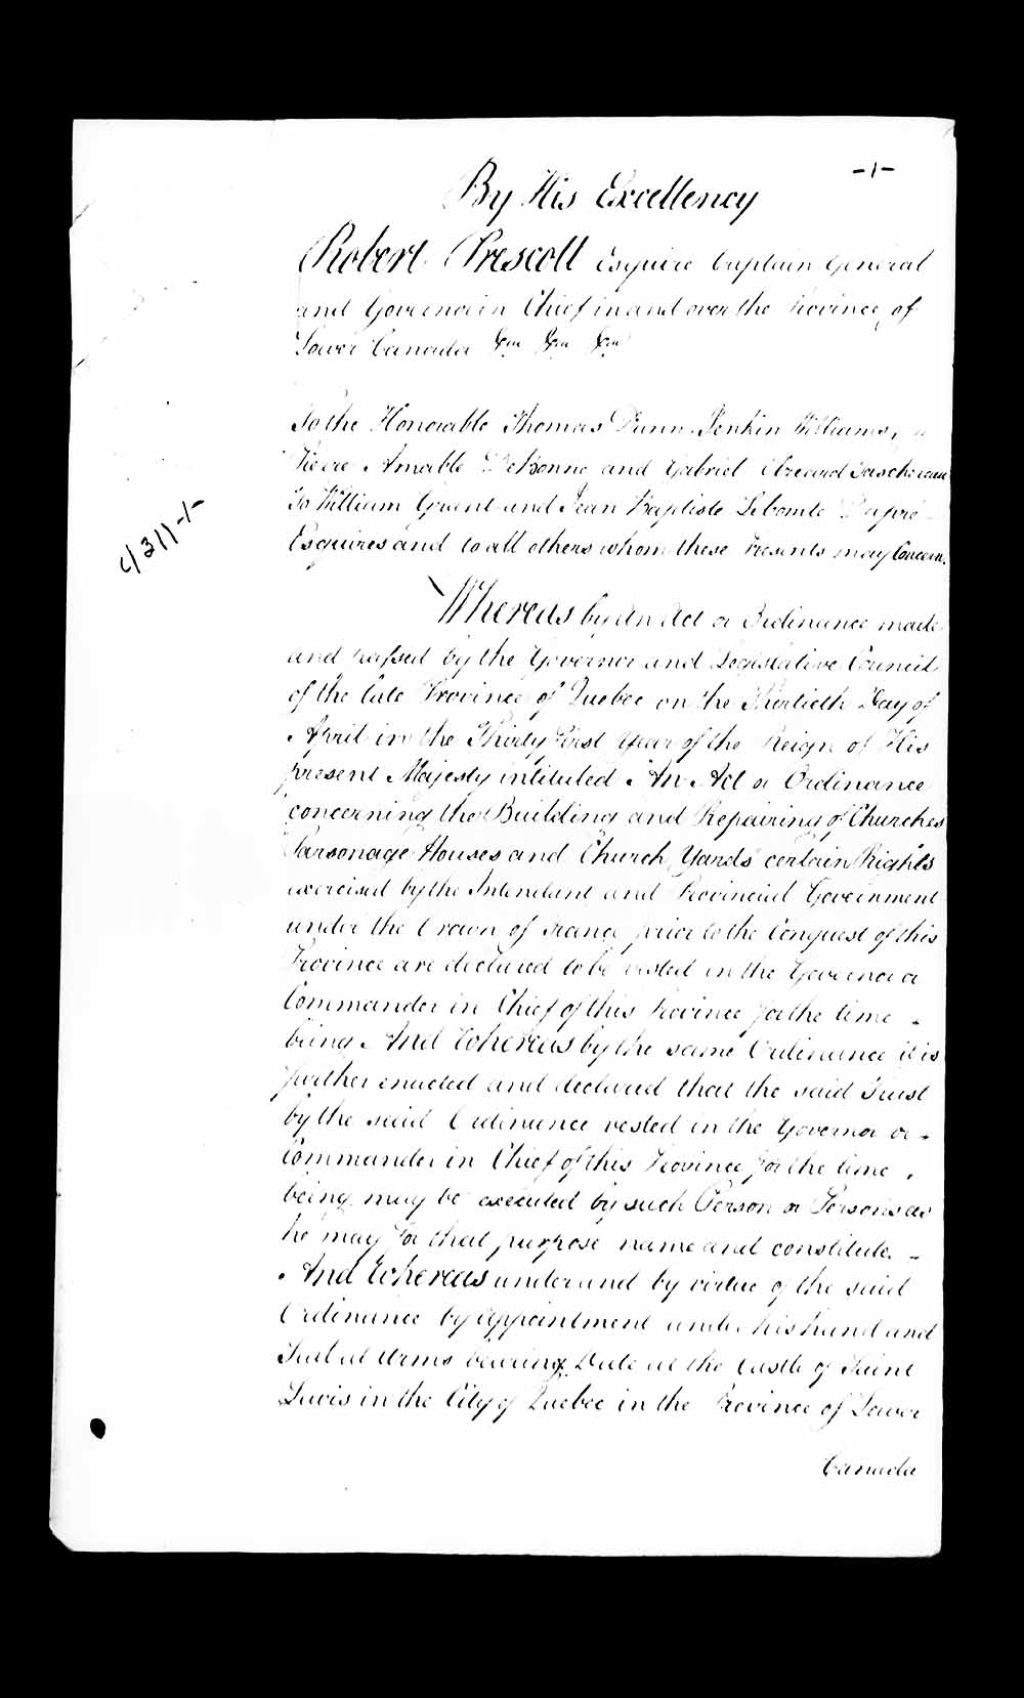 -1-
By His Excellency
Robert Prescott Esquire Captain General
and Governor in Chief in and over the Province of
Lower Canada &ca &ca &ca
To the Honorable Thomas Dunn Jenkin Williams,
Pierre Amable DeBonne and Gabriel Elzeard Taschereau
To William Grant and Jean Baptiste Lecomte Dupré
Esquires and to all others whom these Presents may Concern.
c/311-1-
Whereas by An Act or Ordinance made
and passed by the Governor and Legislative Council
of the late Province of Quebec on the Thirtieth Day of
April in the Thirty First Year of the Reign of His
present Majesty intituled An Act or Ordinance
concerning the Building and Repairing of Churches
Parsonage Houses and Church Yards certain Rights
exercised by the Intendant and Provincial Government
under the Crown of France prior to the Conquest of this
Province are declared to be vested in the Governor or
Commander in Chief of this Province for the time -
being. And Whereas by the same Ordinance it is
further enacted and declared that the said Trust
by the said Ordinance vested in the Governor or -
Commander in Chief of this Province for the time
being may be executed by such Person or Persons as
he may for that purpose name and constitute. -
And Whereas under and by virtue of the said
Ordinance by appointment under his hand and
Seal at Arms bearing Date at the Castle of Saint
Lewis in the City of Quebec in the Province of Lower
Canada